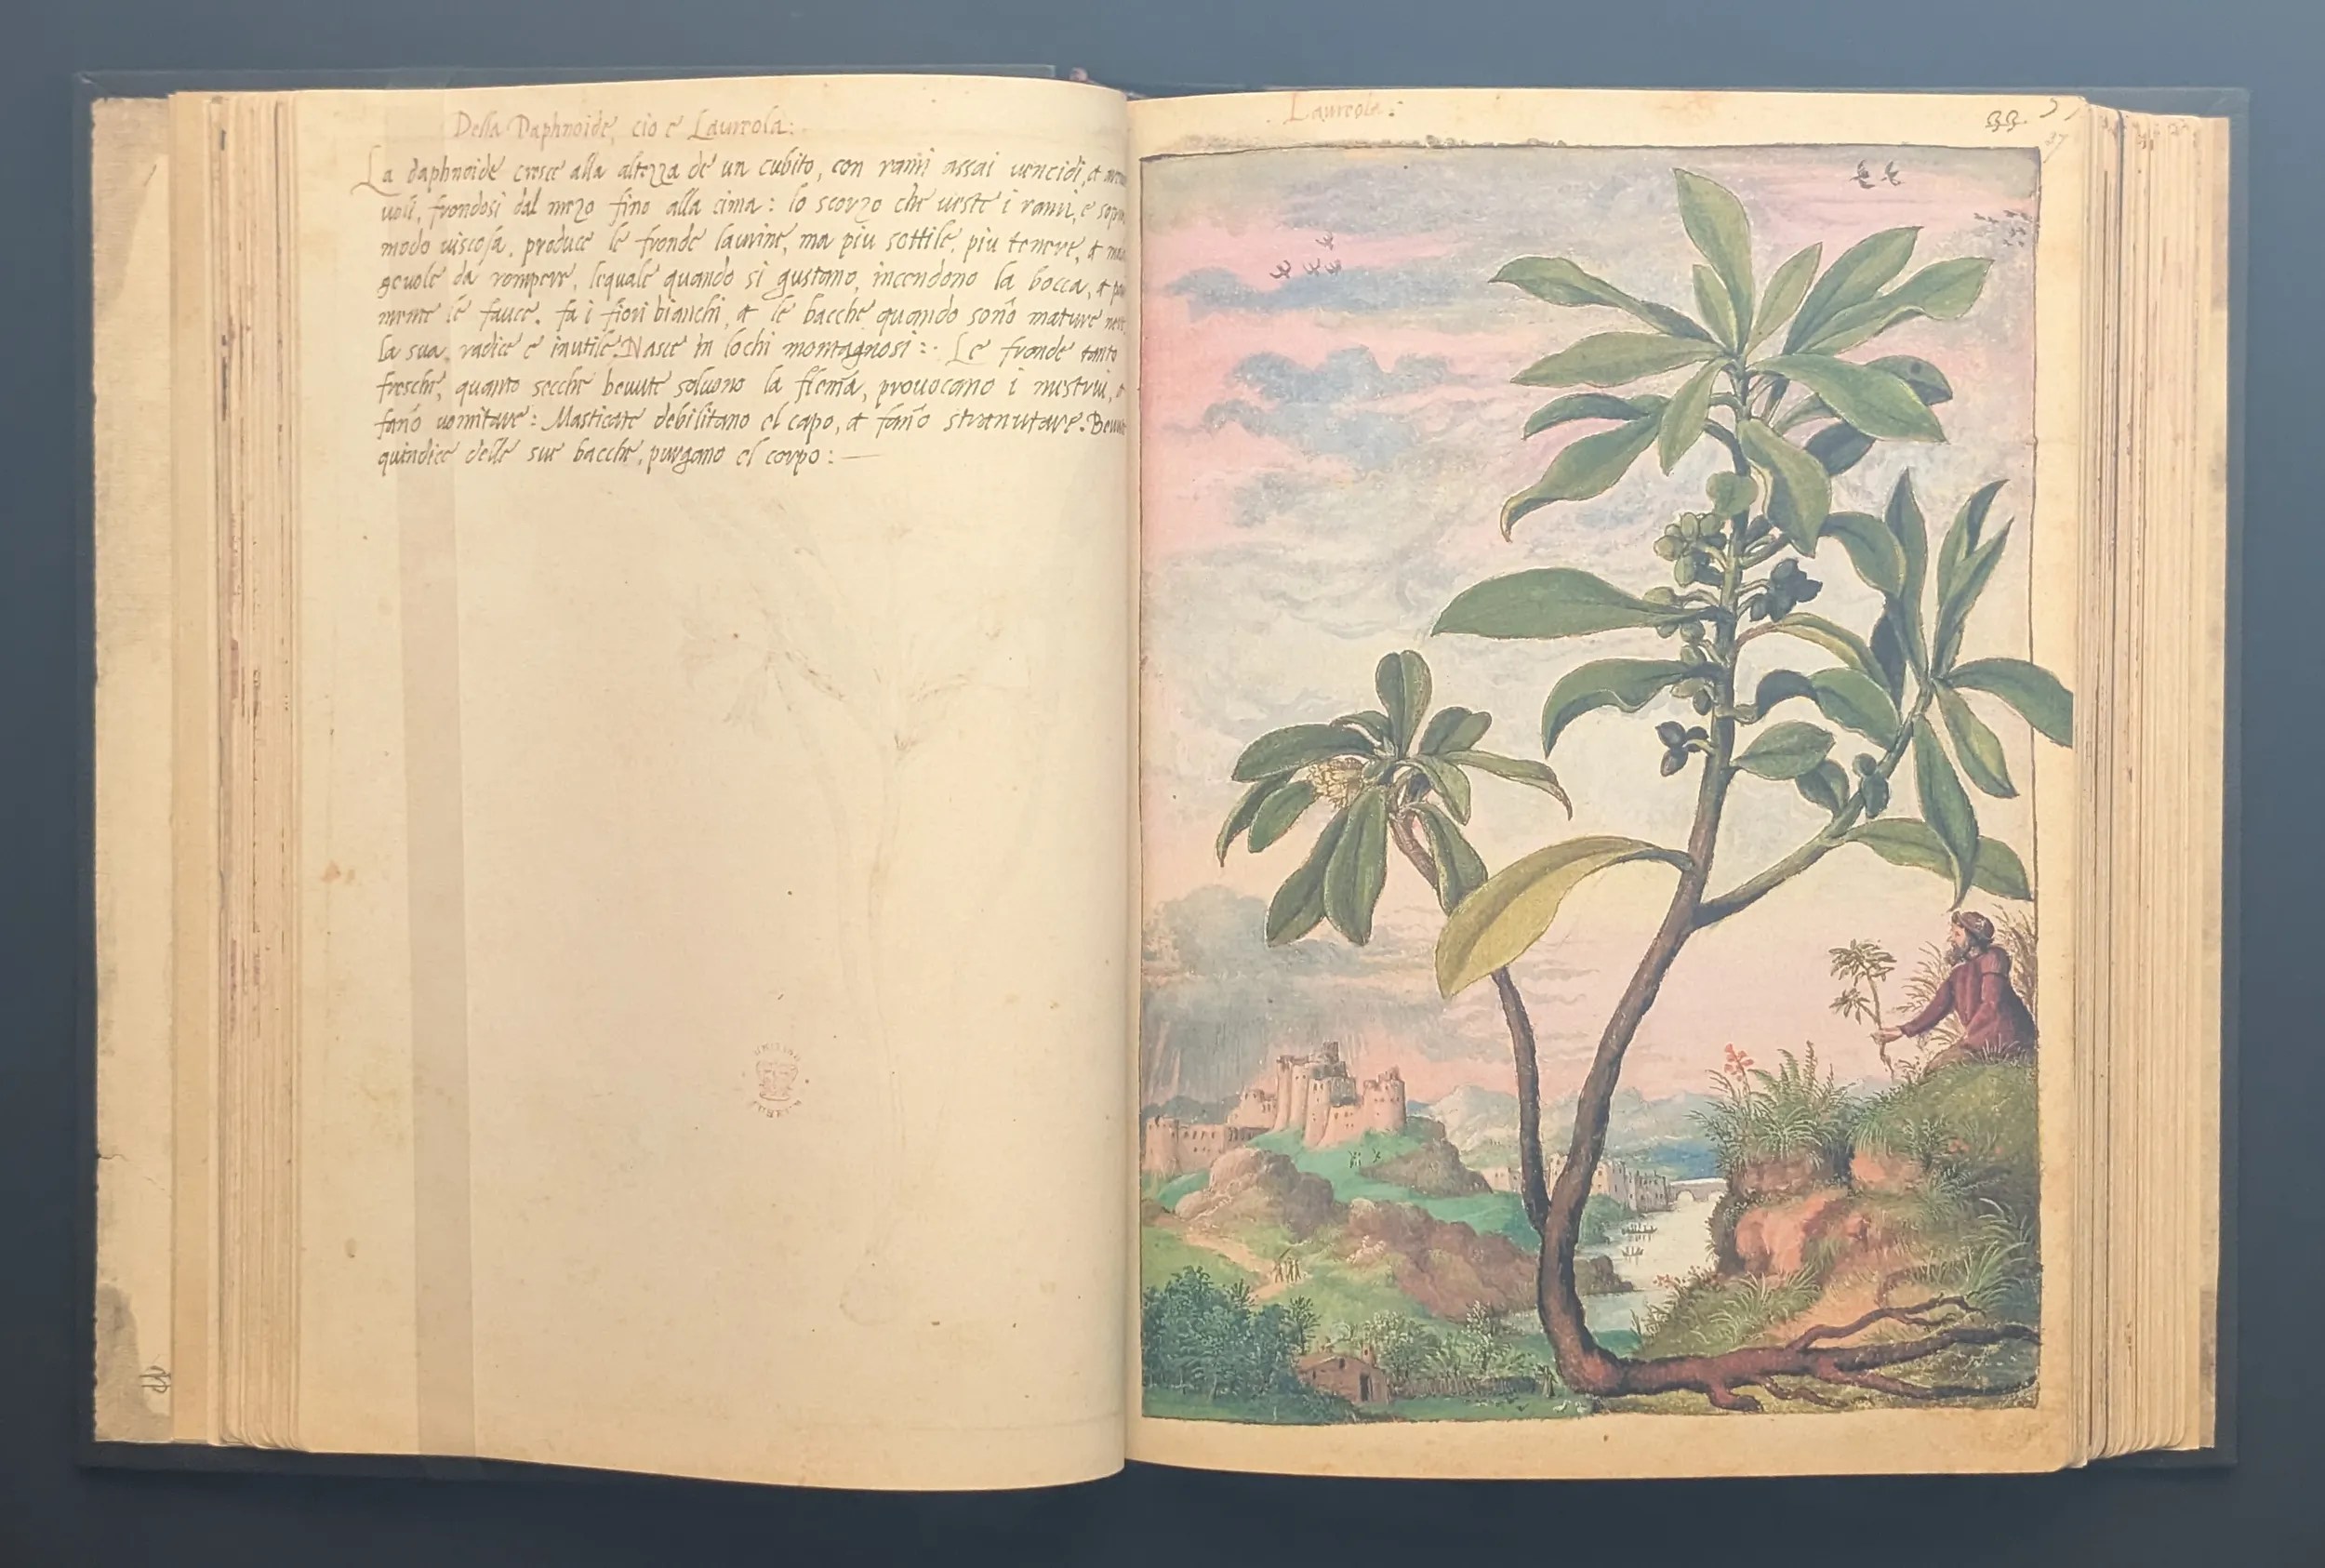 Della Daphnoide, cio e Laureola:
La daphnoide cresce alla altezza de un cubito, con rami assai vencidi, &
uoli, frondosi dal mezo fino alla cima: lo scorzo che ueste i rami, e sopra
modo uiscosa, produce le fronde laurine, ma piu sottile, piu tenere, &
geuole da rompere, lequale quando si gustano, incendono la bocca, &
mente le fauce. fa i fiori bianchi, & le bacche quando sono mature
la sua radice e inutile. Nasce in lochi montagnosi: Le fronde tanto
fresche, quanto secche beuute soluono la flema, prouocano i mestrui, &
fano uomitare: Masticate debilitano el capo, & fano stranutare. Beuute
quindice delle sue bacche, purgano el corpo:
Laureola:
33.
37
BRITISH
MUSEUM